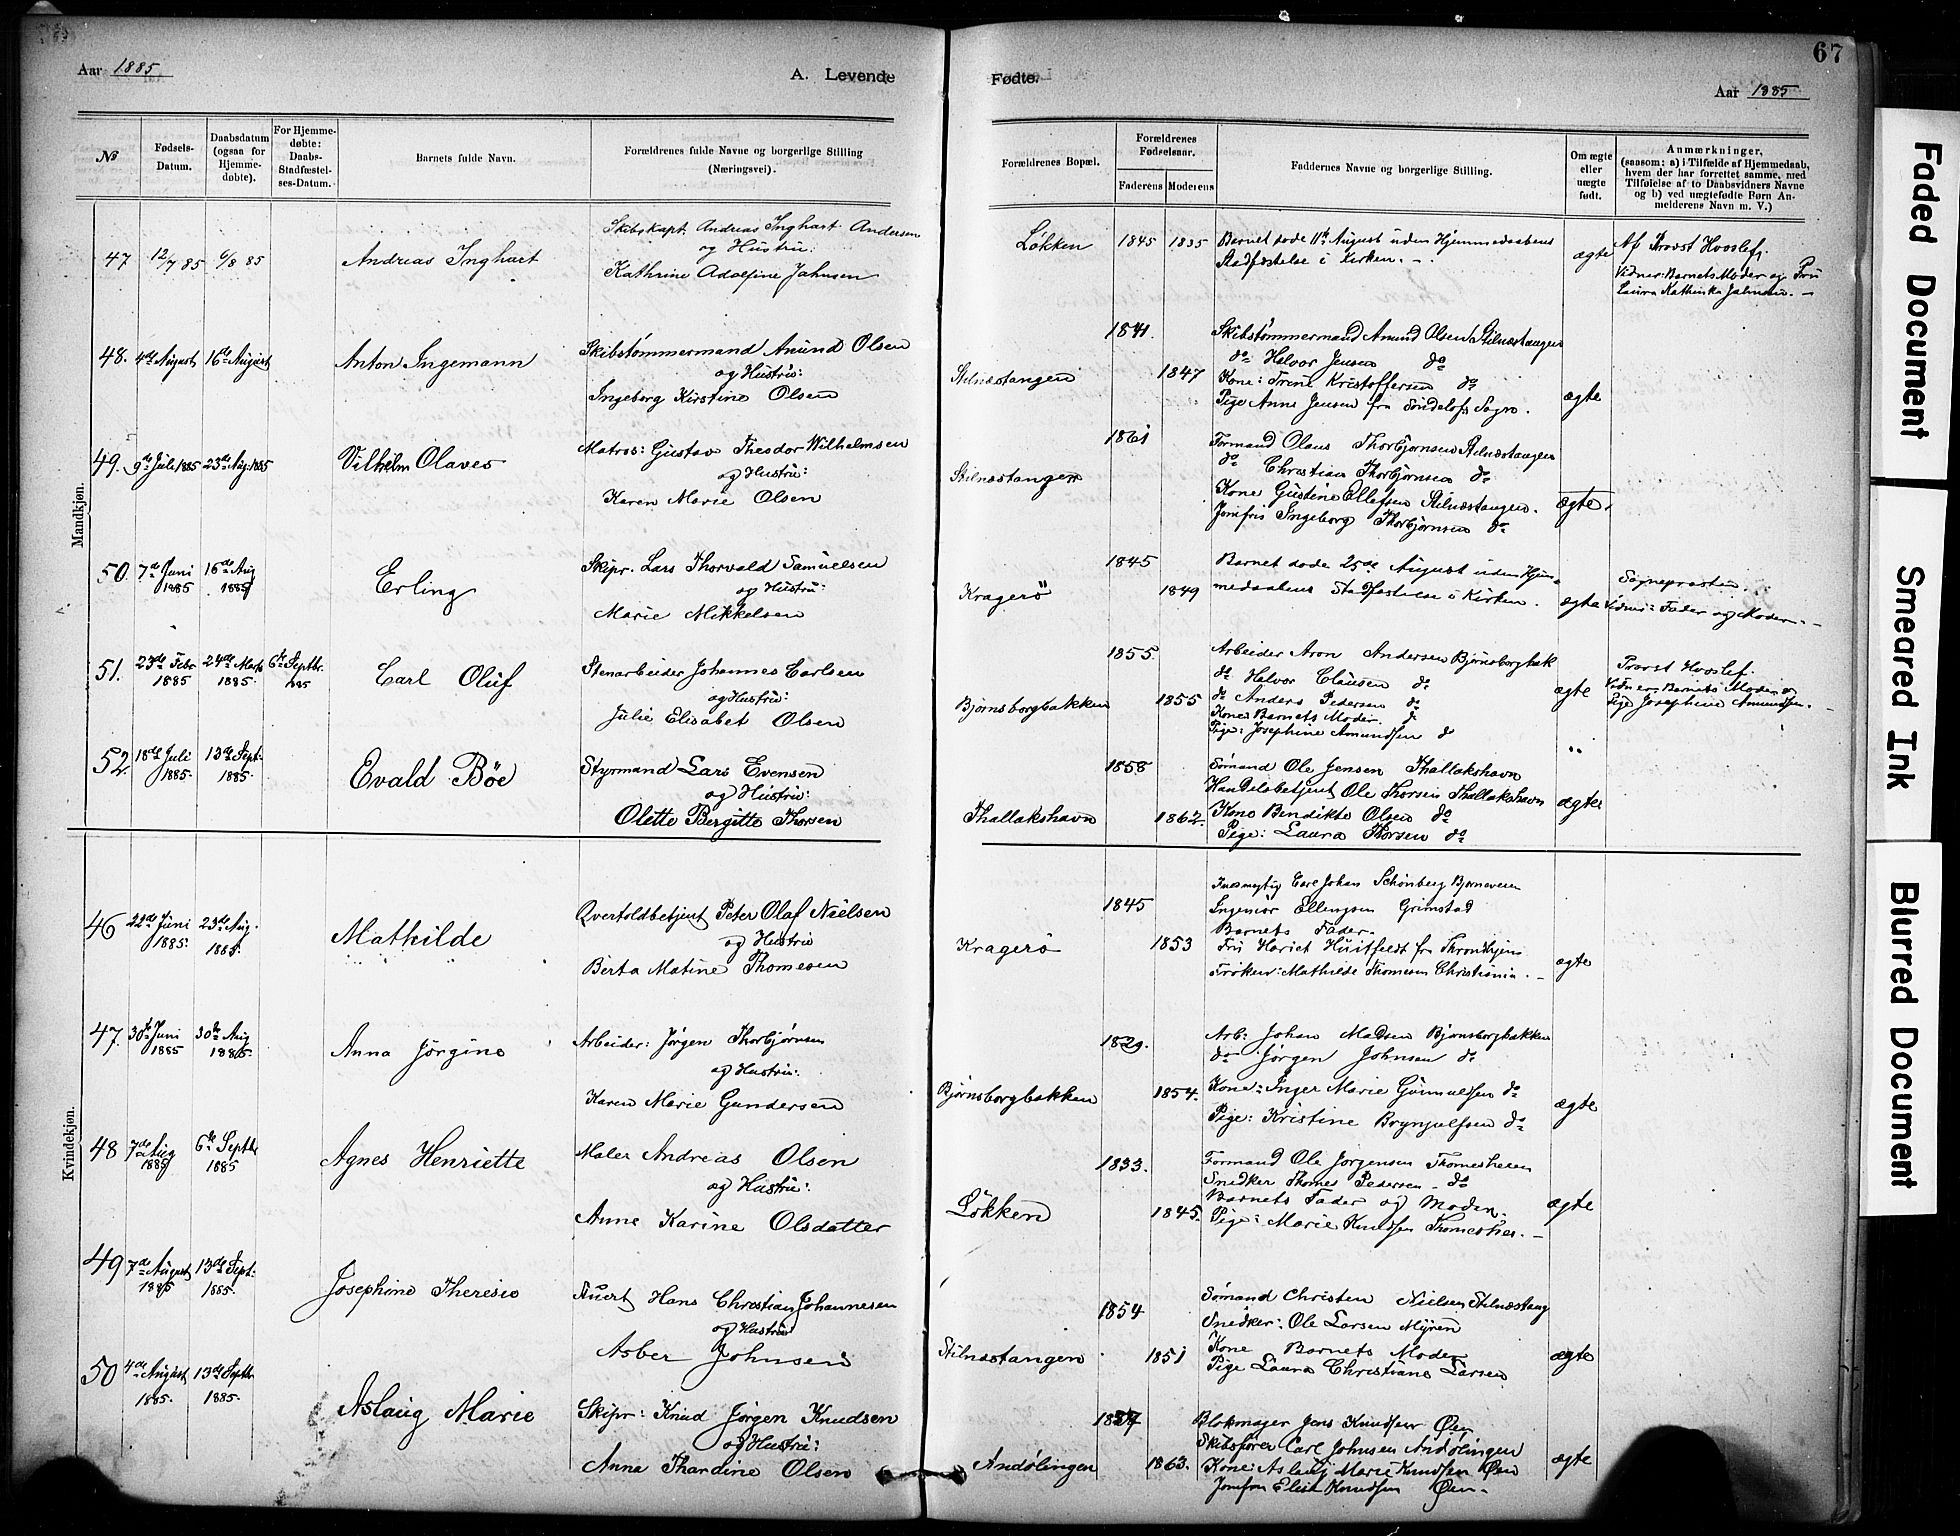 Aar 1885
A. Levende
Fødte.
67
Aar 1885
№
Fødsels-Datum.
Daabsdatum (ogsaa for Hjemmedøbte).
For Hjemmedøbte: Daabs-Stadfæstelses-Datum.
Barnets fulde Navn.
Forældrenes fulde Navne og borgerlige Stilling (Næringsvei).
Forældrenes Bopæl.
Forældrenes Fødselsaar.
Faderens
Moderens
Faddernes Navne og borgerlige Stilling.
Om ægte eller uægte født.
Anmærkninger,
(saasom: a) i Tilfælde af Hjemmedaab, hvem der har forrettet samme, med Tilføielse af to Daabsvidners Navne og b) ved uægtefødte Børn Anmelderens Navn m. V.)
Mandkjøn.
47 12/7 85 6/8 85 Andreas Inghart
Skibskapt. Andreas Inghart Andersen
og Hustru:
Kathrine Adolfine Jahnsen
Løkken 1845 1835
Barnet døde 11te August uden Hjemmedaabens
Stadfæstelse i Kirken. -
ægte
Af Provst Hvoslef.
Vidner: Barnets Moder og Fru
Laura Kathinka Jahnsen. -
48. 4de August 16de August Anton Ingemann
Skibstømmermand Amund Olsen
og Hustru:
Ingeborg Kirstine Olsen
Stilnæstangen 1841. 1847
Skibstømmermand Amund Olsen Stilnæstangen
do Halvor Jensen do
Kone: Trine Kristoffersen do
Pige Anne Jensen fra Søndeløfs Sogn.
ægte
49. 9de Juli 1885 23de Aug. 1885 Vilhelm Olaves
Matros: Gustav Theodor Wilhelmsen
og Hustru:
Karen Marie Olsen
Stilnæstangen 1861
Formand Olaus Thorbjørnsen Stilnæstangen
do Christian Thorbjørnsen do
Kone Gustine Ellefsen Stilnæstangen.
Jomfru Ingeborg Thorbjørnsen do
ægte.
50. 7de Juni 1885 16de Aug 1885 Erling
Skipr. Lars Thorvald Samuelsen
og Hustru:
Marie Mikkelsen
Kragerö 1845 1849
Barnet døde 25de August uden Hjem
medaabens Stadfæstelse i Kirken.
ægte
Sognepræsten.
Vidner: Fader og Moder. -
51. 23de Febr 1885 24de Marts 1885. 6te Septbr. 1885 Carl Oluf
Stenarbeider Johannes Carlsen
og Hustru:
Julie Elisabet Olsen
Bjørnsborgbakken 1855. 1855
Arbeider Aron Andersen Bjørnsborgbak
do Halvor Clausen do
do Anders Pedersen do
Kone Barnets Moder. do
Pige: Josephine Amundsen do
ægte
Provst Hvoslef.
Vidner Barnets Moder og
Pige Josephine Amundsen. -
52. 18de Juli 1885. 13de Sept. 1885. Evald Böe
Styrmand Lars Evensen
og Hustru:
Olette Bergitte Thorsen
Thallakshavn 1858 1862.
Sømand Ole Jensen Thallakshavn
Handelsbetjent Ole Thorsen Thallakshavn
Kone Bendikte Olsen do
Pige: Laura Thorsen do
ægte
Kvindekjøn.
46 22de Juni 1885. 23de Aug. 1885. Mathilde
Overtoldbetjent Peter Olaf Nielsen
og Hustru
Berta Matine Thomesen
Kragerö 1845 1853
Carl Johan Schönberg Bjørneveien
Ingeniør Ellingsen Grimstad
Barnets Fader.
Fru Hariet Huitfeldt fra Throndhjem
Frøken: Mathilde Thomesen Christiania. -
ægte
47. 30te Juni 1885 30te Aug 1885. Anna Jörgine
Arbeider: Jørgen Thorbjørnsen
og Hustru:
Karen Marie Gundersen
Bjørnsborgbakken 1829. 1854.
Arb: Johan Madsen Bjørnsborgbakken
do Jørgen Johnsen do
Kone: Inger Marie Gunnulfsen do
Pige: Kristine Brynjulfsen do
ægte
48 7de Aug 1885 6te Septbr 1885 Agnes Henriette
Maler Andreas Olsen
og Hustru:
Anne Karine Olsdatter
Løkken 1833. 1845.
Formand Ole Jørgensen Thomesheien
Snedker Thomes Pedersen - do
Barnets Fader og Moder.
Pige: Marie Knudsen Thomeshei. -
ægte
49 7de August 1885 13de Sept: 1885. Josephine Theresie
Stuert Hans Christian Johannesen
og Hustru
Asber Johnsen
Stilnæstangen 1854 1851
Sømand Christen Nielsen Stilnæstang
Snedker: Ole Larsen Myren
Kone Barnets Moder
Pige Laura Christiane Larsen
ægte
50 4de August 1885. 13de Septbr 1885. Aslaug Marie
Skipr: Knud Jørgen Knudsen
og Hustru:
Anna Thardine Olsen
Andølingen 1863.
Blokmager Jens Knudsen Øen
Skibsfører Carl Johnsen Andølingen
Kone: Aslaug Marie Knudsen Øen
Jomfru Elise Knudsen Øen. -
ægte
Faded Document
Smeared Ink
Blurred Document